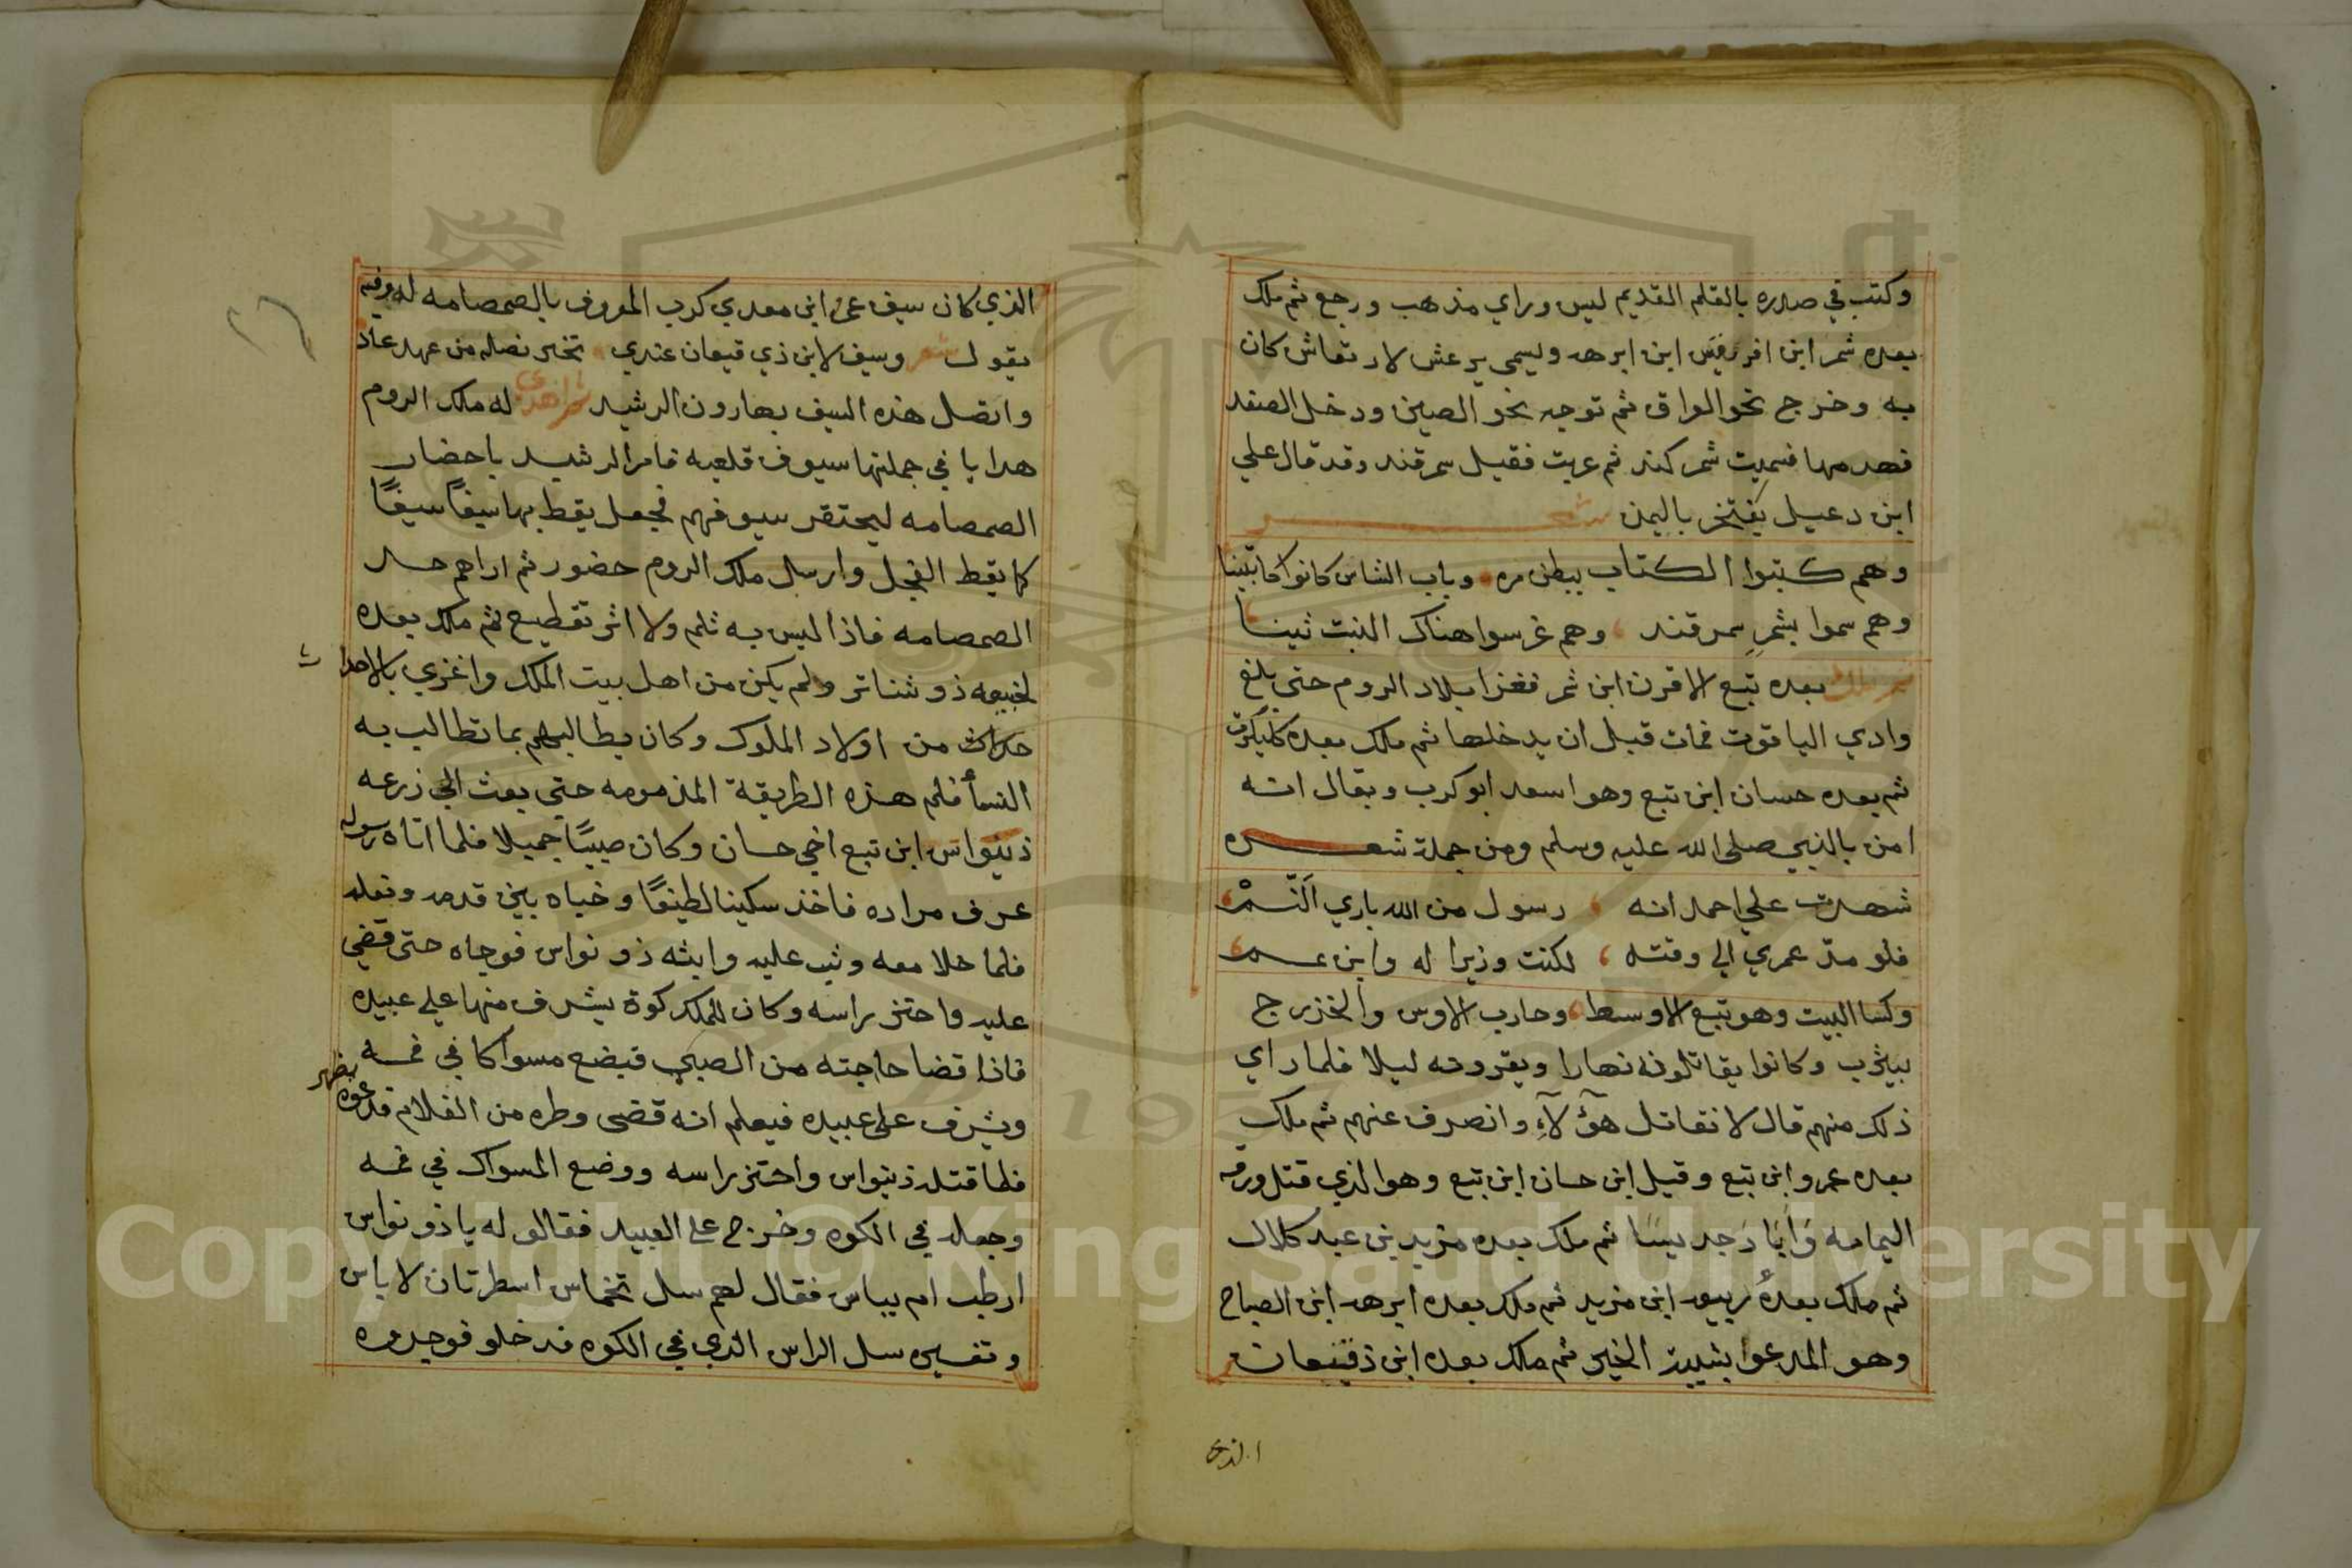 وكتب في صدره بالقلم القديم ليس وراي مذهب ورجع ثم ملك
بعده شمر ابن افريقيس ابن ابرهه ويسمي يرعش لارتعاش كان
به وخرج نحو العراق ثم توجه نحو الصين ودخل الصغد
فهدمها فسميت شمر كند ثم عربت فقيل سمرقند وقد قال علي
ابن دعبيل يفتخر باليمن شعر
وهم كتبوا الكتاب ببطن مره وباب الشاس كانوا كاتبينا
وهم سموا بشمرِ سمرقند وهم غرسوا هناك النبت تينا
ثم ملك بعده تبع الاقرن ابن شمر فغزا بلاد الروم حتى بلغ
وادي الياقوت فمات قبل ان يدخلها ثم ملك بعده كليكرب
ثم بعده حسان ابن تبع وهو اسعد ابو كرب ويقال انه
امن بالنبي صلى الله عليه وسلم ومن جملة شعره
شهدت علي احمد انه رسول من الله باري اَلنَّسمْ
فلو مدّ عمري الي وقته لكنت وزيرا له وابن عم
وكسا البيت وهو تبع الاوسط وحارب الاوس والخزرج
بيثرب وكانوا يقاتلونه نهارا ويقرونه ليلا فلما راي
ذلك منهم قال لا نقاتل هؤلآءِ وانصرف عنهم ثم ملك
بعده عمرو ابن تبع وقيل ابن حسان ابن تبع وهو الذي قتل ورقه
اليمامه وَابَادَ جديسًا ثم ملك بعده مزيد بن عبد كلال
ثم ملك بعدهُ ربيعه ابن مزيد ثم ملك بعده ابرهه ابن الصباح
وهو المدعوا بشيبة الخير ثم ملك بعده ابن ذقيعان
الذي
الذي كان سيف عمر ابن معدي كرب المعروف بالصمصامه له وفيه
يقول شعر وسيف لابن ذي قيعان عندي تخير نصله من عهد عاد
واتصل هذه السيف بهارون الرشيد ثم اهدى له ملك الروم
هدايا في جملتها سيوف قلعيه فامر الرشيد باحضار
الصمصامه ليحتقر سيوفهم فجعل يقط بها سيفًا سيفًا
كما يقط الفجل وارسل ملك الروم حضور ثم اراهم حد
الصمصامه فاذا ليس به ثلم ولا اثر تقطيع ثم ملك بعده
لخيعه ذو شناتر ولم يكن من اهل بيت الملك واغزي بالاحداث
حداث من اولاد الملوك وكان يطالبهم بما تطالب به
النسأ فلم هذه الطريقة المذمومه حتى بعث الي زرعه
ذينواس ابن تبع اخي حسان وكان صبيًا جميلا فلما اتاه رسوله
عرف مراده فاخذ سكينا لطيفًا وخباه بين قدمه ونعله
فلما خلا معه وثب عليه واثبه ذو نواس فوجاه حتى قضي
عليه واحتز راسه وكان للملك كوة يشرف منها علي عبيده
فاذا قضا حاجته من الصبي فيضع مسواكا في فمه
ويشرف على عبيده فيعلم انه قضى وطره من الغلام فدعوه يظهر
فلما قتله ذينواس واحتز راسه ووضع المسواك في فمه
وجعله في الكوه وخرج على العبيد فقالو له يا ذو نواس
ارطب ام يباس فقال لهم سل تخماس اسطرتان لا باس
وتفسيره سل الراس الذي في الكوه فدخلو فوجدوه
٢٦
Copyright © King Saud University